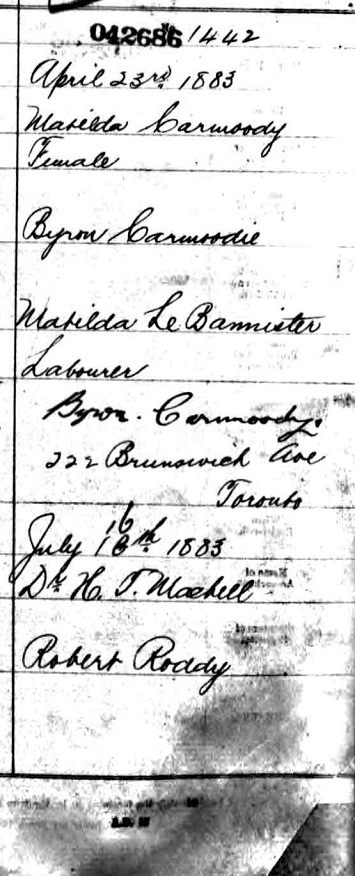 042686 1442
April 23rd 1883
Matilda Carmoody
Female
Byron Carmoodie
Matilda Le Bannister
Labourer
Byron. Carmoody.
222 Brunswick Ave
Toronto
16
July 16th 1883
Dr H. T. Machell
Robert Roddy